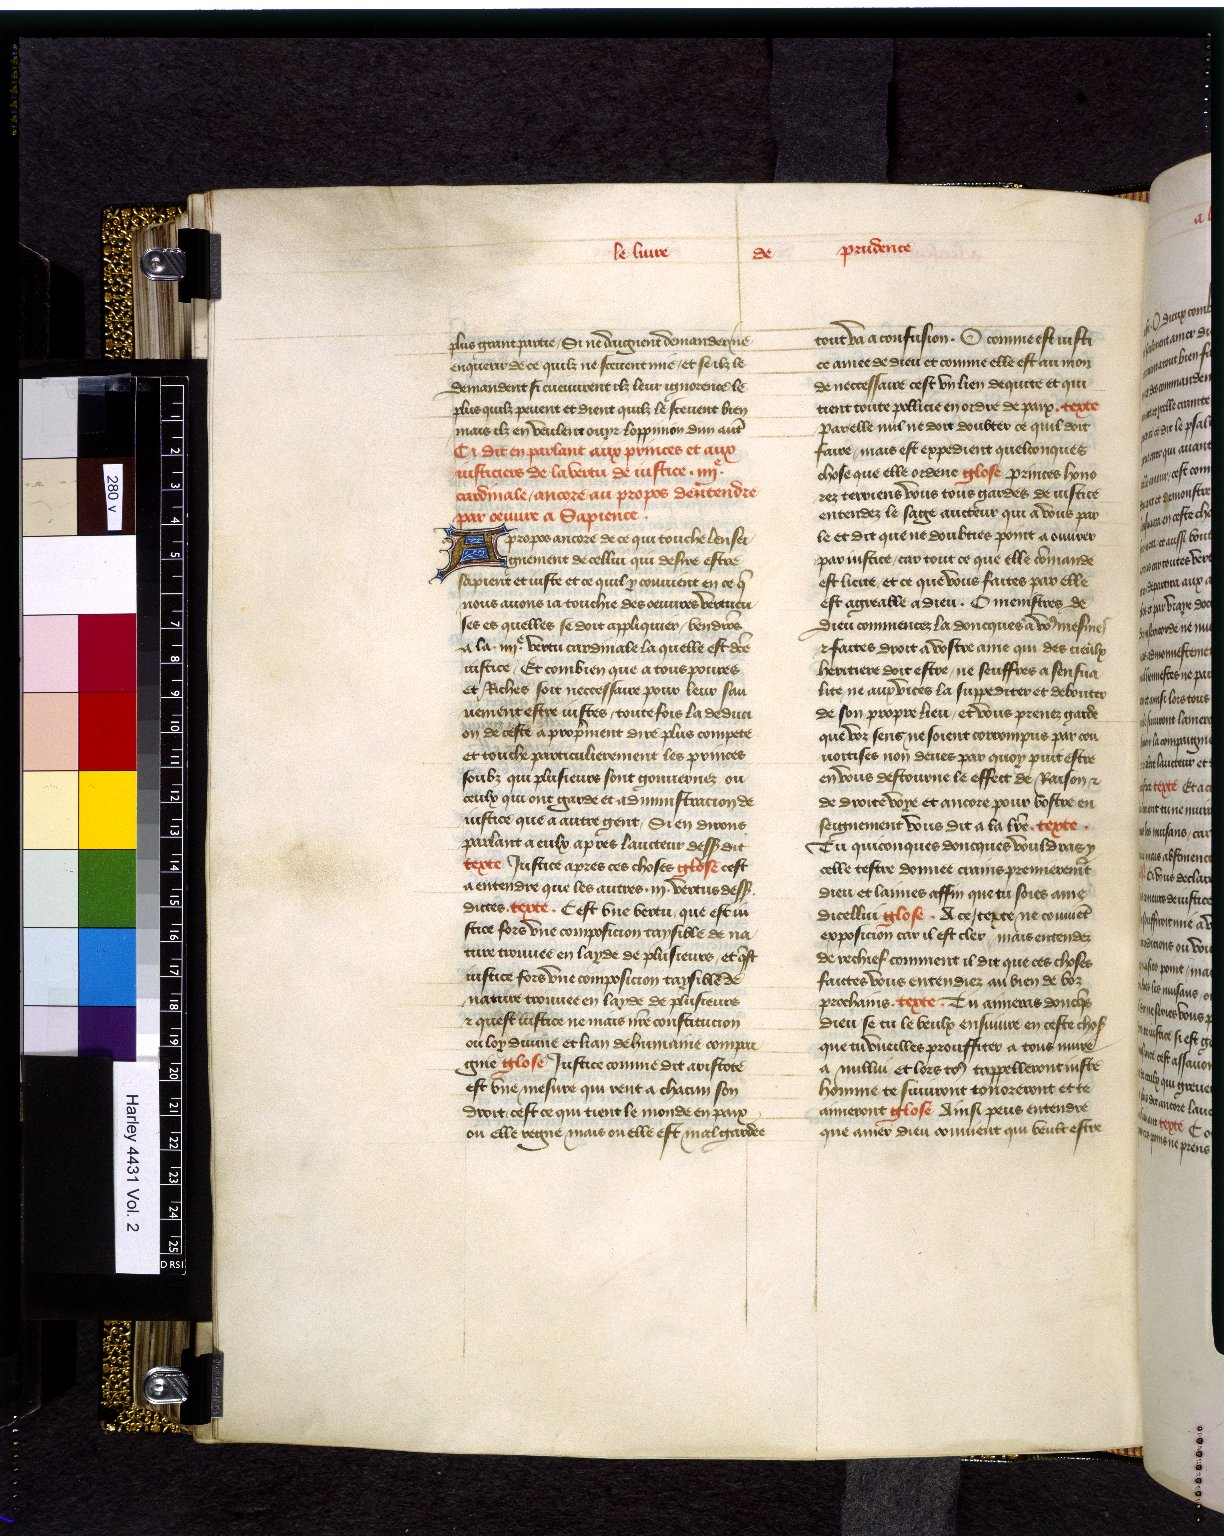 le liure de prudence
plus grant partie / Si ne daignent demander ne
enquerir de ce quilz ne sceuent mie / et se ilz le
demandent si cueuurent ilz leur ignorence le
plus quilz peuent et dient quilz le sceuent bien
mais ilz en veulent ouyr loppinion dun autre
Ci dit en parlant aux princes et aux
iusticiers de la vertu de iustice . iiije.
cardinale / ancore au propos dentendre
par oeuure a Sapience .
A propos ancore de ce qui touche lensei
gnement de cellui qui desire estre
sapient et iuste et ce quil y conuient en ce q
nous auons ia touchie des oeuures vertueu
ses es quelles se doit appliquer / vendrōs
a la . iiije vertu cardinale la quelle est dce
iustice / Et combien que a tous poures
et Riches soit neccessaire pour leur sau
uement estre iustes / toutefois la deduci
on de ceste a proprement dire plus compete
et touche particulierement les princes
soubz qui plusieurs sont gouuernez ou
ceulx qui ont garde et administracion de
iustice que a autre gent / Si en dirons
parlant a eulx apres laucteur dess dit
texte Justice apres ces choses glose cest
a entendre que les autres . iij. vertus dess.
dictes . texte . Cest vne vertu, que est iu
stice fors vne composicion taysible de na
ture trouuee en layde de plusieurs / et qst
iustice fors vne composicion taysible de
nature trouuee en layde de plusieurs
et quest iustice ne mais nre constitucion
ou loy diuine et lian de humaine compai
gnie glose Justice comme dit aristote
est vne mesure qui rent a chacun son
droit, cest ce qui tient le monde en paix
ou elle regne / mais ou elle est mal gardee
tout va a confusion . O comme est iusti
ce amee de dieu et comme elle est au mon
de neccessaire cest vn lien dequite et qui
tient toute pollicie en ordre de paix . texte
par elle nul ne doit doubter ce quil doit
faire / mais est expedient quelconques
chose que elle ordene glose princes hono
rez terriens vous tous gardes de iustice
entendez le sage aucteur qui a vous par
le et dit que ne doubties point a ouurer
par iustice / car tout ce que elle cōmande
est licite, et ce que vous faites par elle
est agreable a dieu . O menistres de
Dieu commencez la doncques a vo9 mesmes
et faites droit a vostre ame qui des cieulx
heritiere doit estre / ne seuffres a sensua
lite ne aux vices la suppediter et debouter
de son propre lieu / et vous prenez garde
que voz sens ne soient corrompus par cou
uoitises non deues par quoy puit estre
en vous destourne le effect de Raison et
de droite voye et ancore pour vostre en
seignement vous dit a la lre . texte .
Tu quiconques doncques vouldras y
celle testre donnee crains premierent
dieu et laimes affin que tu soies ame
dicellui glose . A ce / texte ne conuiēt
exposicion car il est cler / mais entendez
de rechief comment il dit que ces choses
faictes vous entendiez au bien de voz
prochains . texte . Tu aimeras doncqs
dieu se tu le veulx ensuiure en ceste chose
que tu vueilles prouffiter a tous nuire
a nullui et lors to9 tappelleront iuste
homme te suiuront tonoreront et te
aimeront glose Ainsi peus entendre
que amer dieu conuient qui veult estre
280 v
Harley 4431 Vol. 2